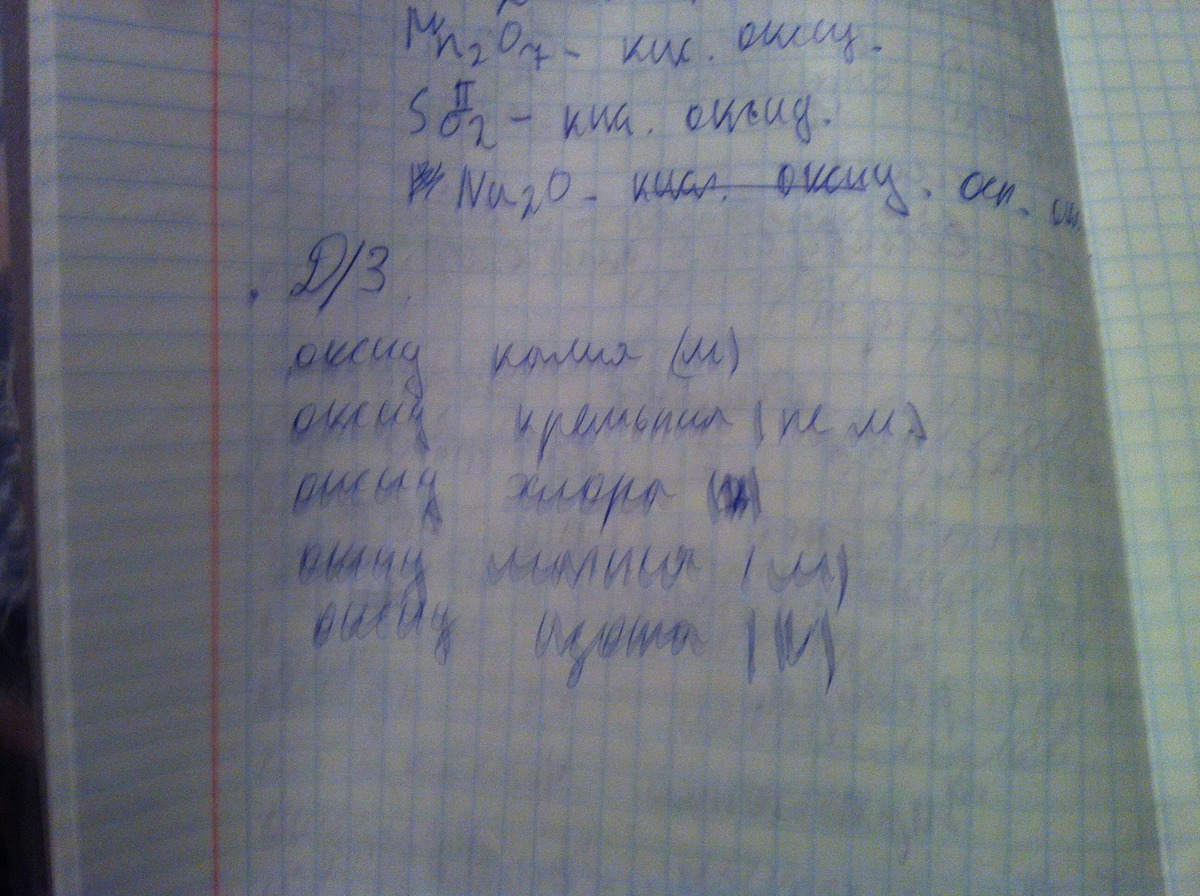 Mn2O7 - кис. оксид.
SO2 II - кис. оксид.
Na2O - кисл. оксид. осн.
Д/З
оксид калия (м)
оксид кремния (не м.)
оксид хлора
оксид магния (м)
оксид азота